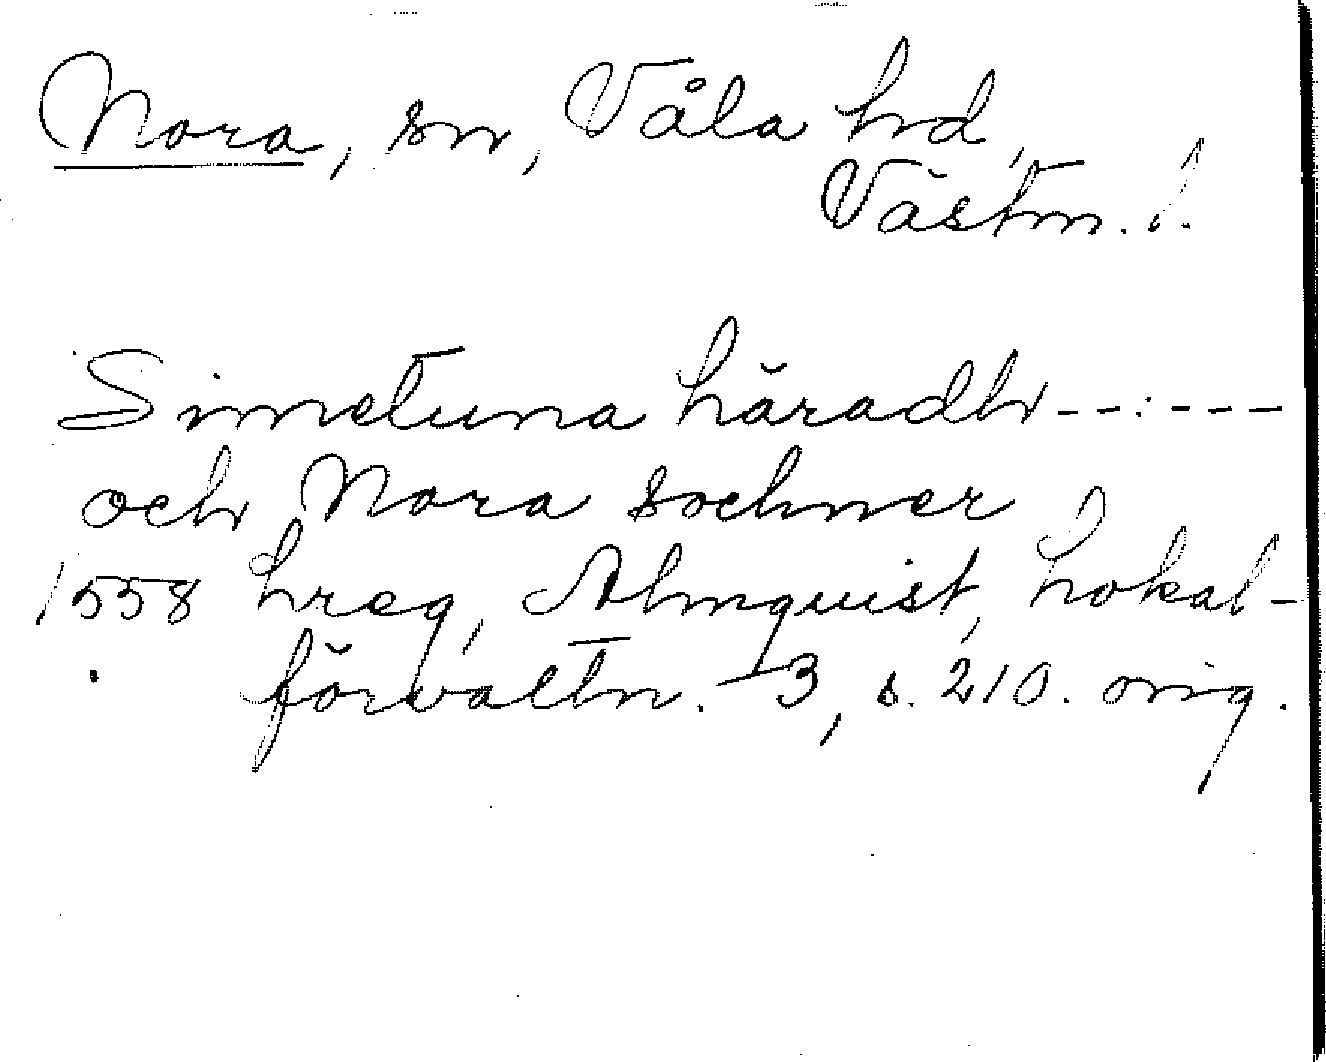 Nora, sn, Våla hd,
Västm. l.
Simetuna häradh ------
och Nora sochner
1558 hreg, Almquist, Lokal-
förvaltn. 3, s. 210. orig.